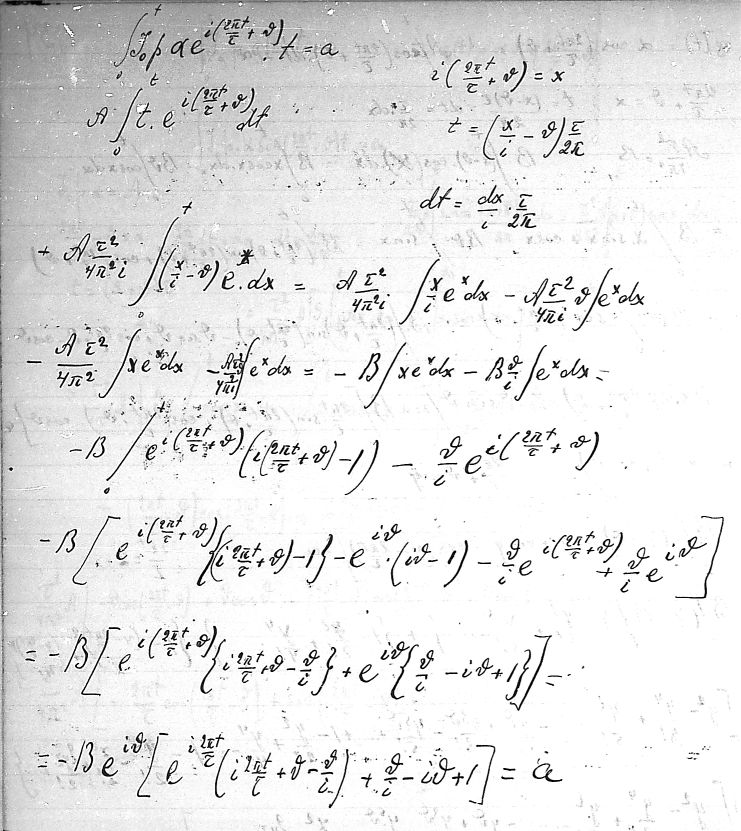 ∫₀ᵗ J₀ p α e^{i(2πt/τ + ϑ)} t = a
i(2πt/τ + ϑ) = x
A ∫₀ᵗ t. e^{i(2πt/τ + ϑ)} dt
t = (x/i − ϑ) τ/2π
dt = dx/i · τ/2π
+ A τ²/4π²i ∫₀ᵗ (x/i − ϑ) e^x . dx = A τ²/4π²i ∫ x/i e^x dx − A τ²/4πi ϑ ∫ e^x dx
− Aτ²/4π² ∫ x e^x dx − Aτ²ϑ/4π²i ∫ e^x dx = − B ∫ x e^x dx − B ϑ/i ∫ e^x dx =
− B /₀ᵗ e^{i(2πt/τ + ϑ)} (i(2πt/τ + ϑ) − 1) − ϑ/i e^{i(2πt/τ + ϑ)}
− B [ e^{i(2πt/τ + ϑ)} {(i 2πt/τ + ϑ) − 1} − e^{iϑ} · (iϑ − 1) − ϑ/i e^{i(2πt/τ + ϑ)} + ϑ/i e^{iϑ} ]
= − B [ e^{i(2πt/τ + ϑ)} {i 2πt/τ + ϑ − ϑ/i} + e^{iϑ} {ϑ/i − iϑ + 1} ] =
= − B e^{iϑ} [ e^{i 2πt/τ} (i 2πt/τ + ϑ − ϑ/i) + ϑ/i − iϑ + 1 ] = a